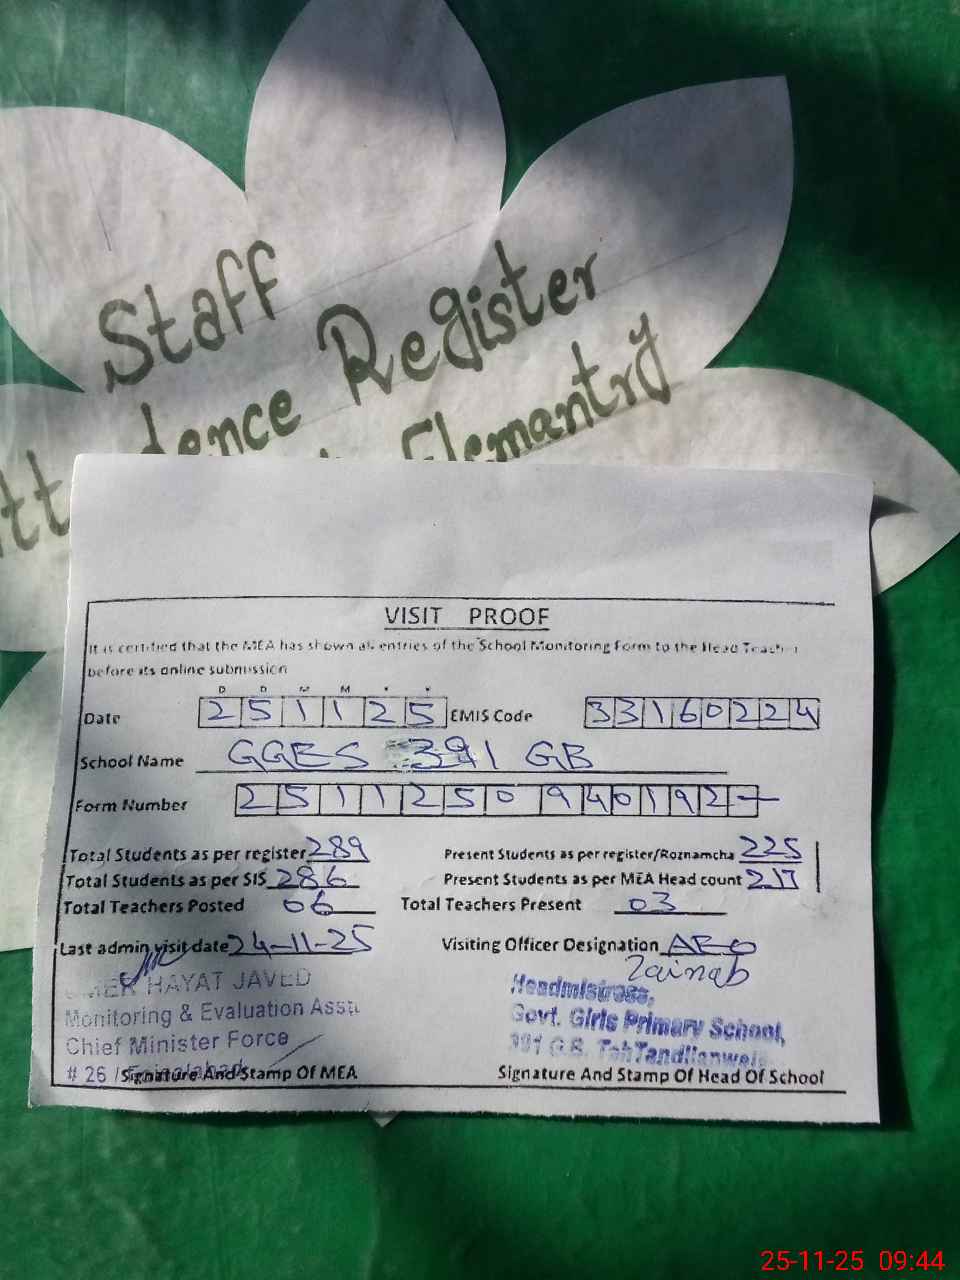 Staff
Register
Elemantry
VISIT PROOF
It is certified that the MEA has shown all entries of the School Monitoring Form to the Head Teacher
before its online submission
D D M M Y Y
Date 251125 EMIS Code 33160224
School Name GGES 391 GB
Form Number 2511250940192-
Total Students as per register 289 Present Students as per register/Roznamcha 225
Total Students as per SIS 286 Present Students as per MEA Head count 217
Total Teachers Posted 06 Total Teachers Present 03
Last admin visit date 24-11-25 Visiting Officer Designation AEO
Zainab
UMER HAYAT JAVED Headmistress,
Monitoring & Evaluation Asstt. Govt. Girls Primary School,
Chief Minister Force 391 G.B. Teh Tandlianwala
# 26 / Faisalabad
Signature And Stamp Of MEA Signature And Stamp Of Head Of School
25-11-25 09:44